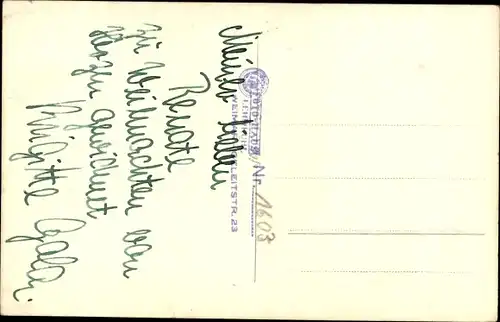 Meiner lieben
Renate
zu Weihnachten von
Herzen gewidmet
Brigitte
FOTO-HAUS
WEIMAR
LEITSTR. 23
Nr. 1603